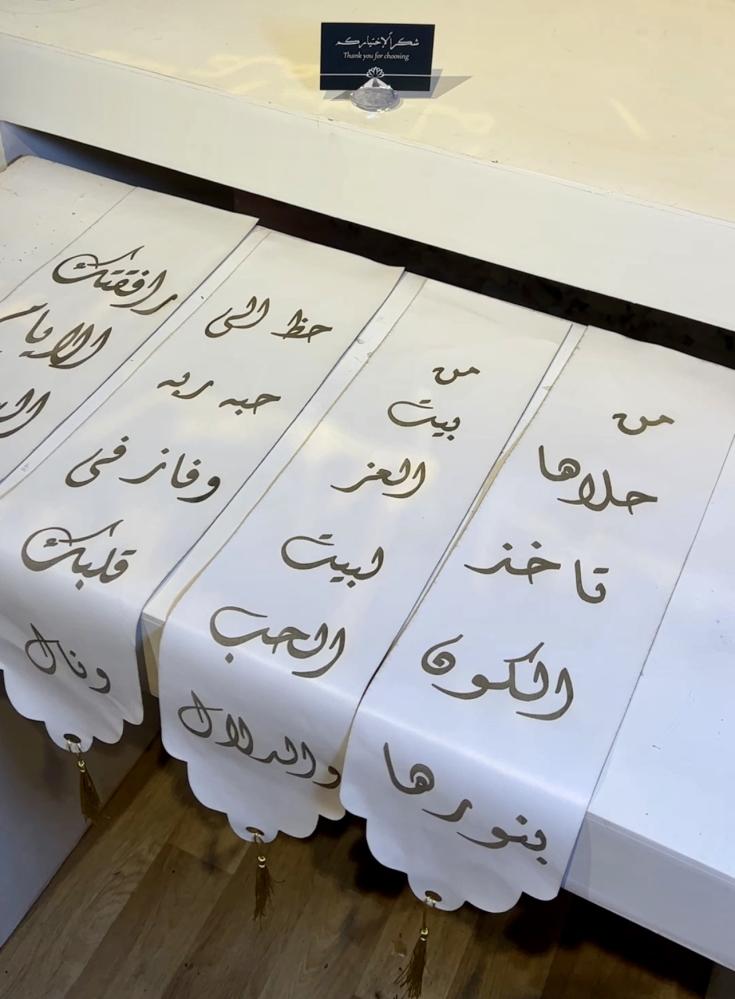 شكراً لإختياركم
Thank you for choosing
من
حلاها
تاخذ
الكون
بنورها
من
بيت
العز
لبيت
الحب
والدلال
حظ الي
حبه ربه
وفاز في
قلبك
ونال
رافقتك
الايام